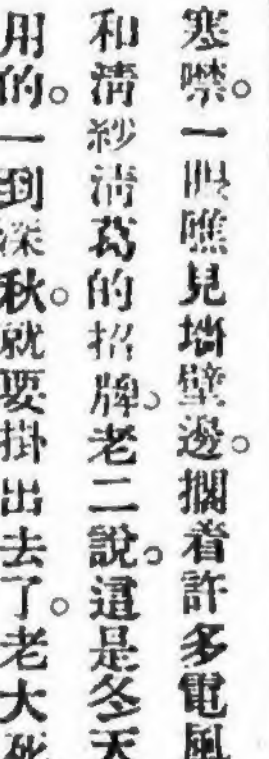 寒噤。一眼瞧見墻壁邊。擱着許多電風
和淸紗淸葛的招牌。老二說。這是冬天
用的。一到深秋。就要掛出去了。老大死